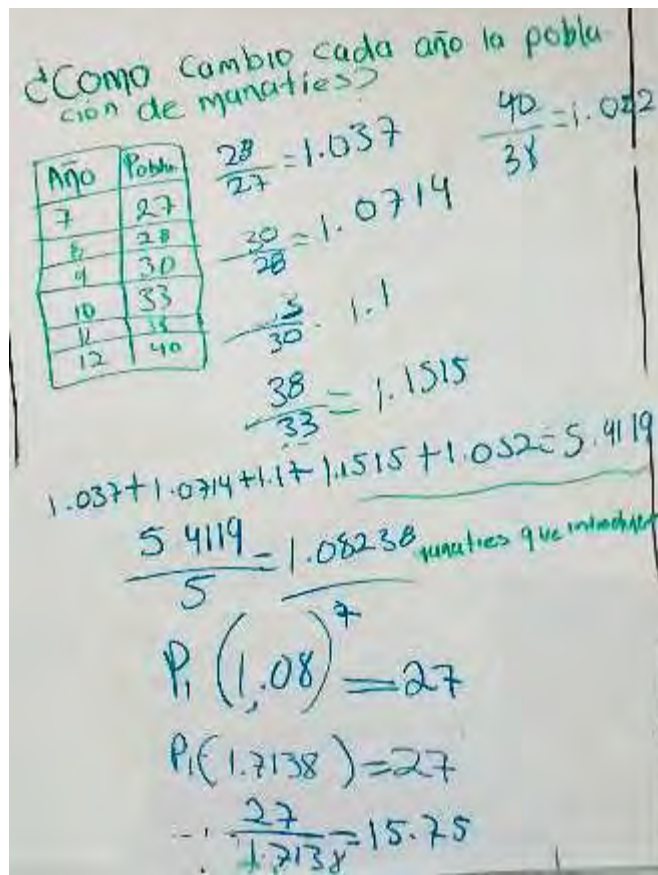 ¿Como cambio cada año la pobla
ción de manaties?
Año Pobla
7 27
8 28
9 30
10 33
11 38
12 40
28/27 = 1.037
40/38 = 1.052
30/28 = 1.0714
/30 = 1.1
38/33 = 1.1515
1.037+1.0714+1.1+1.1515+1.052=5.4119
5 4119/5 = 1.08238 manaties que
P₁(1.08)⁷=27
P₁(1.7138)=27
27/1.7138=15.75